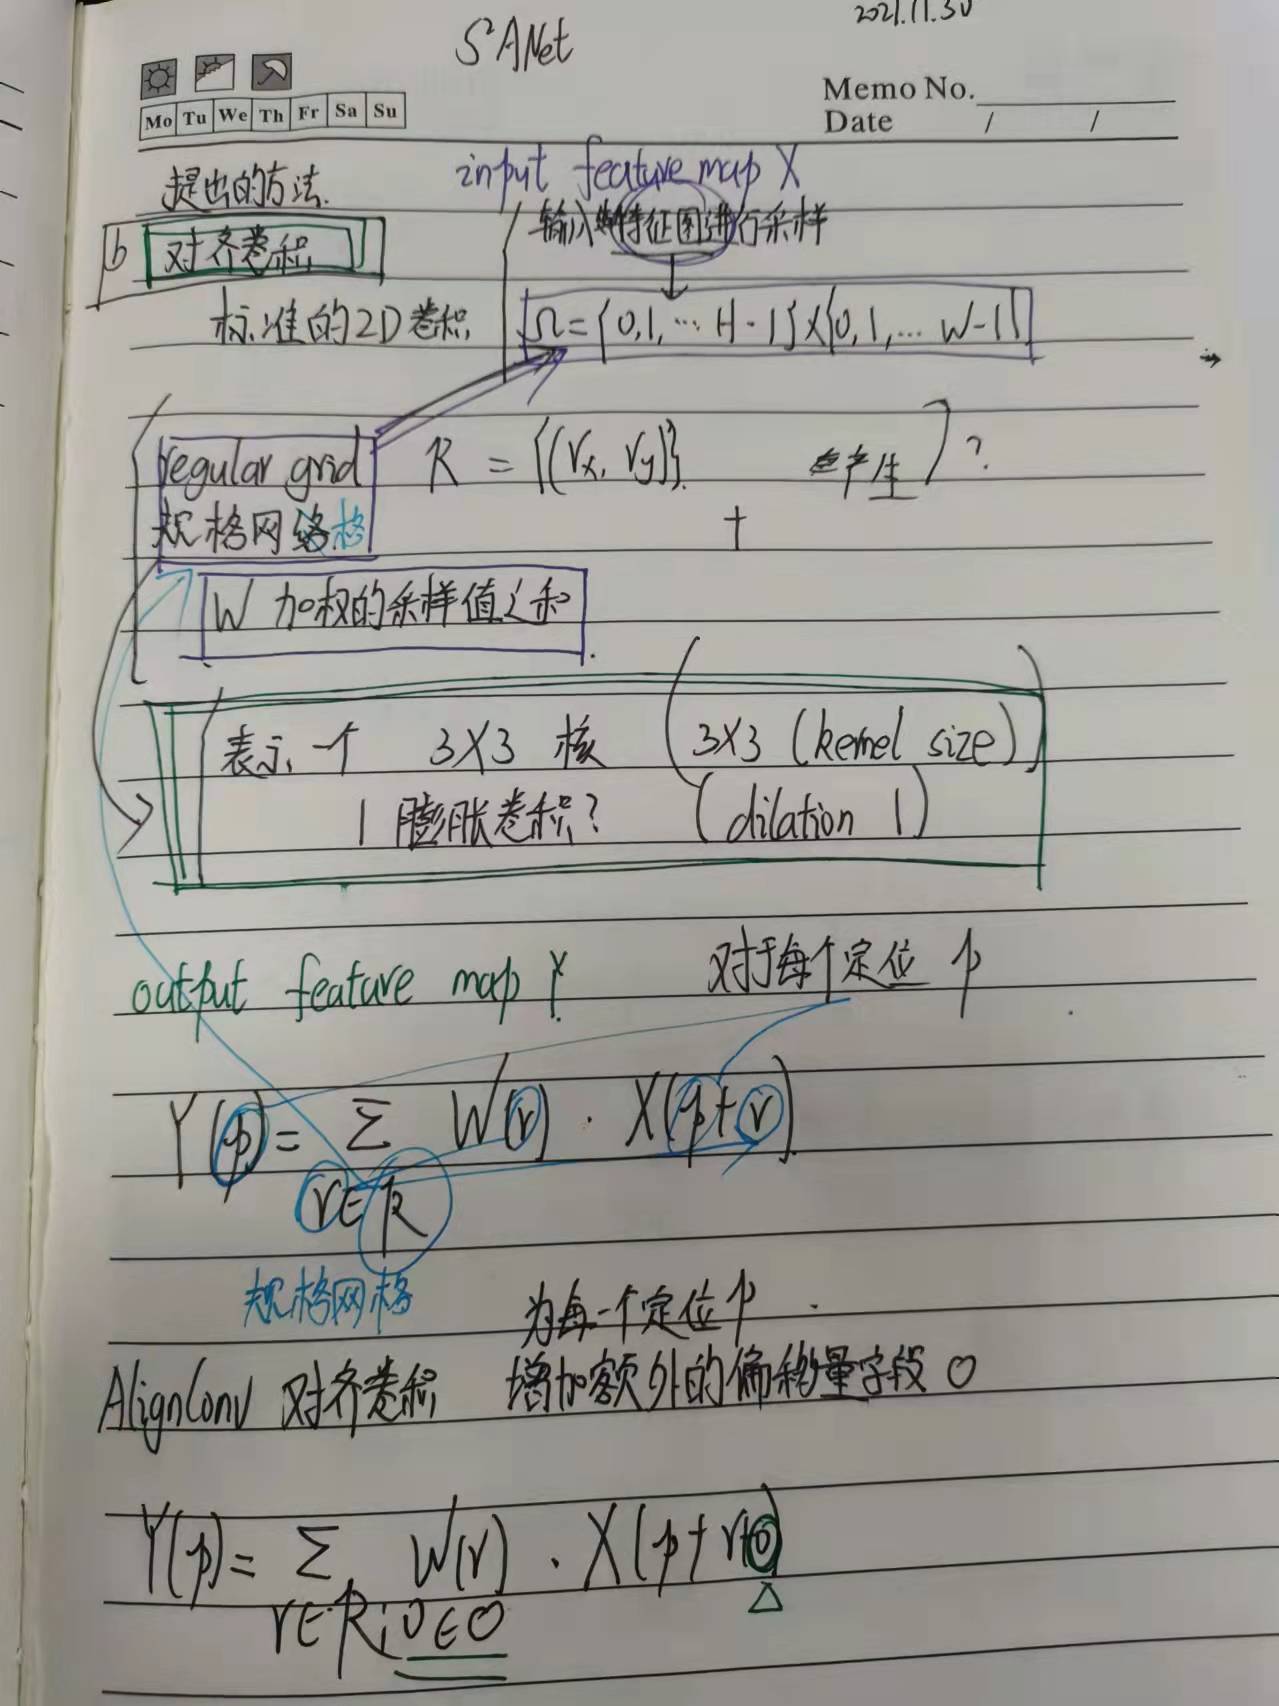 2021.11.30
S²ANet
Memo No.
Mo Tu We Th Fr Sa Su
Date / /
提出的方法.
input feature map X
输入 特征图进行采样
b 对齐卷积
标准的2D卷积
Ω={0,1,…H-1}X{0,1,…W-1}
regular grid R = {(rx, ry)}. 产生 ?
规格网格
+
W 加权的采样值之和.
表示一个 3X3 核 3X3 (kernel size)
1 膨胀卷积? (dilation 1)
output feature map Y. 对于每个定位 p
Y(p)= Σ W(r) · X(p+r)
r∈R
规格网格
为每一个定位p.
AlignConv 对齐卷积 增加额外的偏移量字段 O
Y(p)= Σ W(r) · X(p+r+o)
r∈R; o∈O